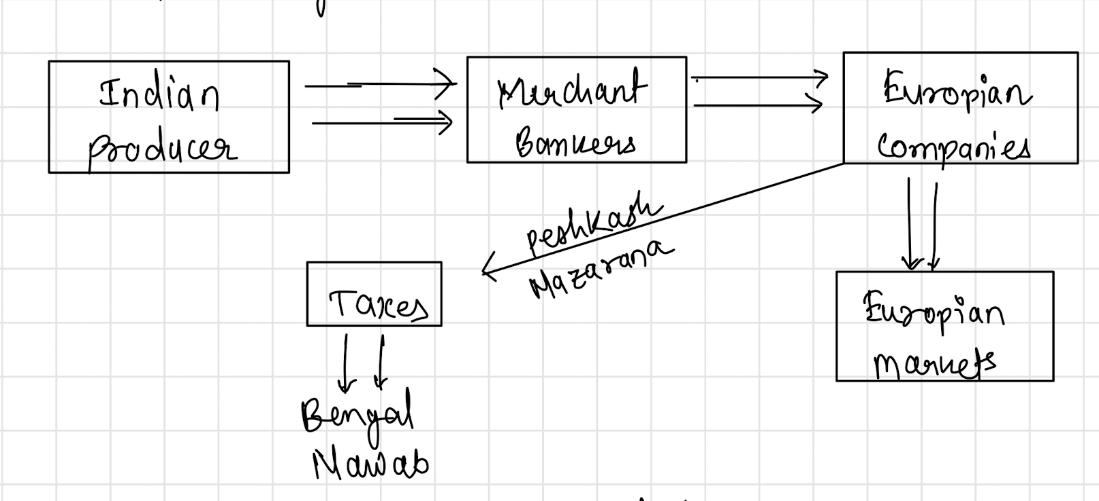 Indian
producer
Merchant
Bankers
Europian
companies
peshkash
Nazarana
Taxes
Bengal
Nawab
Europian
markets